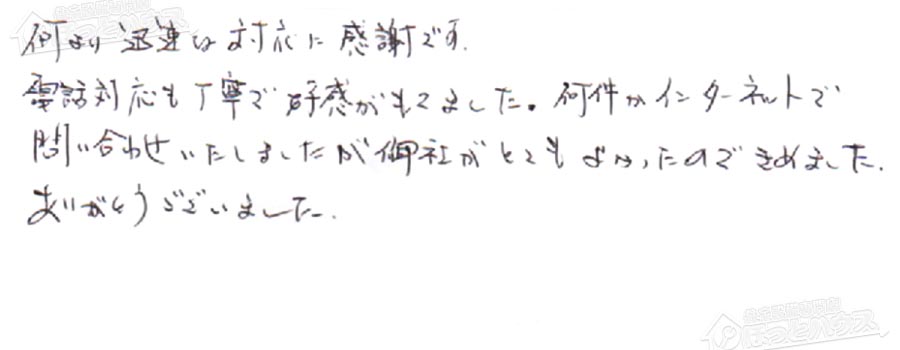 何より迅速な対応に感謝です.
電話対応も丁寧で好感がもてました。何件かインターネットで
問い合わせいたしましたが御社がとてもよかったのできめました.
ありがとうございました.
ほっとハウス